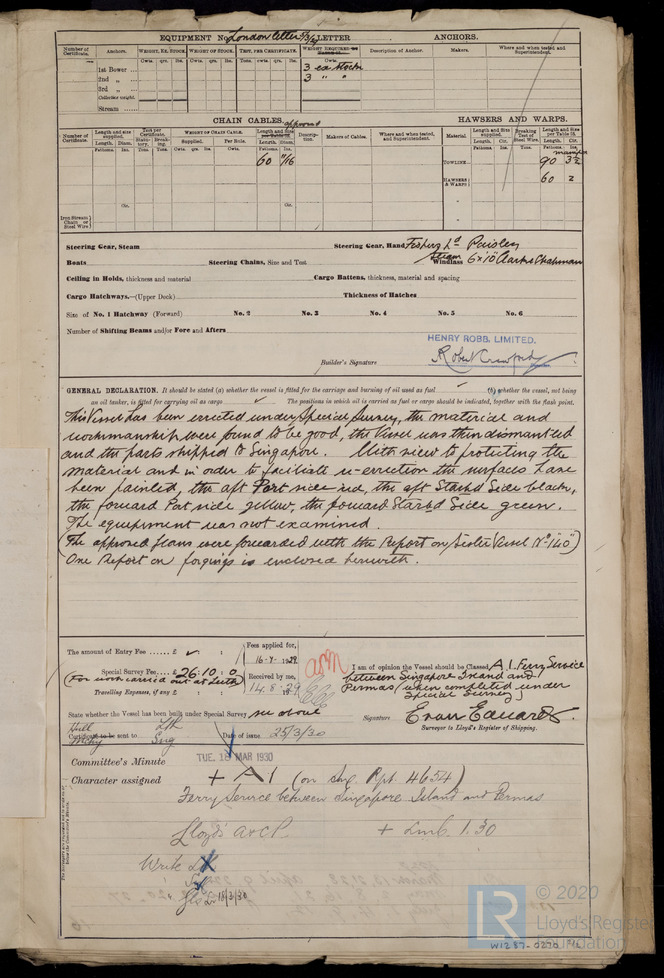 EQUIPMENT No London letter 5/3/29 LETTER ANCHORS.
Number of Certificate. Anchors. WEIGHT, EX. STOCK. WEIGHT OF STOCK. TEST, PER CERTIFICATE. WEIGHT REQUIRED Description of Anchor. Makers. Where and when tested and Superintendent.
Cwts. qrs. lbs. Cwts. qrs. lbs. Tons. Cwts. qrs. lbs. Cwts.
1st Bower ... 3 ex stock
2nd „ 3 " "
3rd „
Collective weight.
Stream
CHAIN CABLES. approved HAWSERS AND WARPS.
Number of Certificate. Length and size supplied. Test per Certificate. WEIGHT OF CHAIN CABLE. Length and size Description. Makers of Cables. Where and when tested, and Superintendent. Material. Length and size supplied. Breaking Test of Steel Wire. Length and size per Table 16.
Supplied. Per Rule.
Length. Diam. Statutory. Breaking. Length. Diam. Length. Cir. Length. Cir.
Fathoms. Ins. Tons. Tons. Cwts. qrs. lbs. Cwts. Fathoms. Ins. Fathoms. Ins. Tons. Fathoms. Ins.
60 11/16 TOWLINE 90 manila 3½
HAWSERS & WARPS 60 2
Cir. Cir.
Iron Stream Chain or Steel Wire
Steering Gear, Steam Steering Gear, Hand Fisher Ld Paisley
Boats Steering Chains, Size and Test Steam Windlass 6x10 Clarke Chapman
Ceiling in Holds, thickness and material Cargo Battens, thickness, material and spacing
Cargo Hatchways.—(Upper Deck) Thickness of Hatches
Size of No. 1 Hatchway (Forward) No. 2 No. 3 No. 4 No. 5 No. 6
Number of Shifting Beams and/or Fore and Afters
HENRY ROBB, LIMITED.
Builder's Signature Robert Crawford
GENERAL DECLARATION. It should be stated (a) whether the vessel is fitted for the carriage and burning of oil used as fuel ✓ (b) whether the vessel, not being
an oil tanker, is fitted for carrying oil as cargo ✓ The positions in which oil is carried as fuel or cargo should be indicated, together with the flash point.
This Vessel has been erected under Special Survey, the material and
workmanship were found to be good, the Vessel was then dismantled
and the parts shipped to Singapore. With view to protecting the
material and in order to faciliate re-erection the surfaces have
been painted, the aft Port side red, the aft Starbd Side black,
the forward Port side yellow, the forward Starbd Side green.
The equipment was not examined.
(The approved plans were forwarded with the Report on Sister Vessel No "140")
One Report on forgings is enclosed herewith.
The amount of Entry Fee ..... £ ✓ : : Fees applied for,
16.7.1929
Special Survey Fee... £ 26:10:0 Received by me,
(For work carried out at Leith) 14.8.29
Travelling Expenses, if any £ : :
I am of opinion the Vessel should be Classed A.1. Ferry Service
between Singapore Island and
Permas (when completed under
Special Survey)
State whether the Vessel has been built under Special Survey see above
Signature Evan Edwards.
Surveyor to Lloyd's Register of Shipping.
Certificate to be sent to Lth Sng Date of issue 25/3/30
Committee's Minute TUE. 18 MAR 1930
Character assigned + A1 (on Sng. Rpt. 4654)
Ferry Service between Singapore Island and Permas
Lloyd's A&CP. + LMC. 1.30
Write Lth
18/3/30
© 2020
LR Lloyd's Register
Foundation
W1287-0270 1/2